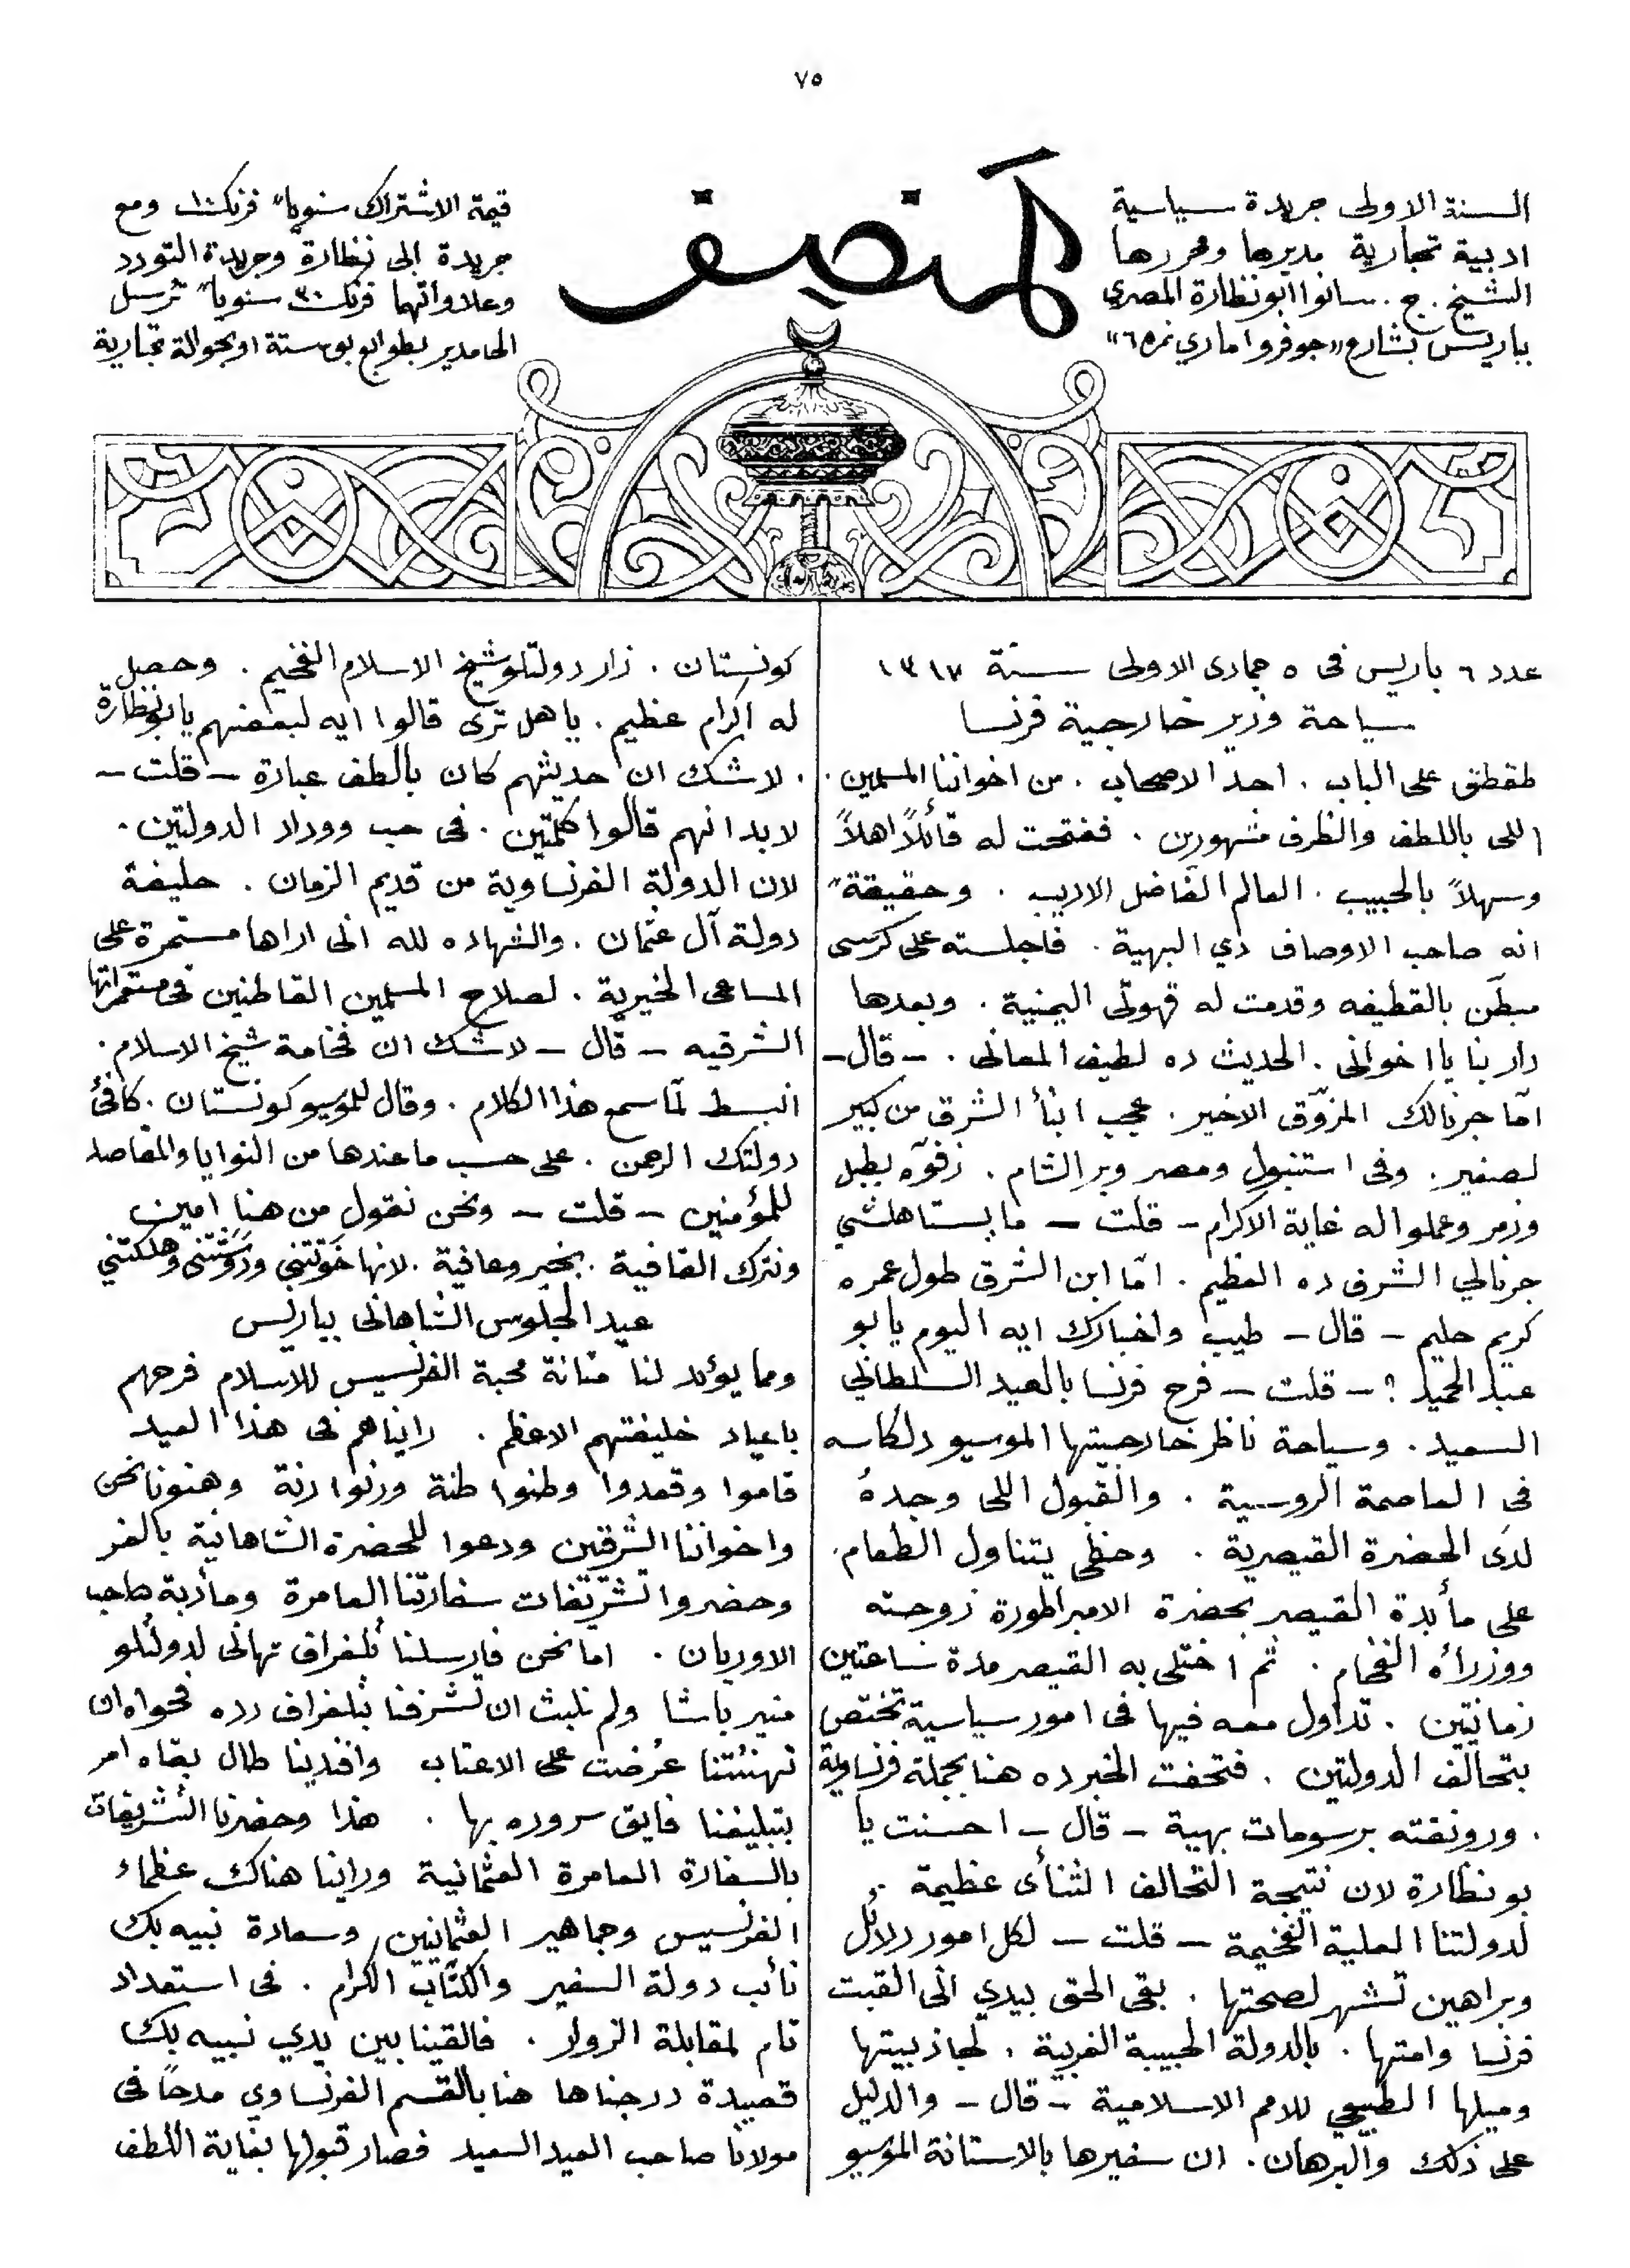 ٧٥
المنصف
السنة الاولى جريدة سياسية
ادبية تجارية مديرها ومحررها
الشيخ . ج . سانوا ابو نظارة المصري
بباريس بشارع «جوفروا ماري نمره ٦»
قيمة الاشتراك سنوياً فرنك ١٠ ومع
جريدة ابى نظارة وجريدة التودد
وعلاواتهما فرنك ٣٠ سنوياً ترسل
الى مدير بطوابع بوستة او بحوالة تجارية
عدد ٦ باريس فى ٥ جمادى الاولى سنة ١٣١٧
سياحة وزير خارجية فرنسا
طقطق على الباب . احد الاصحاب . من اخواننا المسلمين .
اللى باللطف والظرف مشهورين . ففتحت له قائلاً اهلاً
وسهلاً بالحبيب . العالم الفاضل الاديب . وحقيقةً
انه صاحب الاوصاف دي البهية . فاجلسته على كرسى
مبطّن بالقطيفه وقدمت له قهوتى اليمنية . وبعدها
دار بنا يا اخوانى . الحديث ده لطيف المعانى . – قال –
امّا جرنالك المزوّق الاخير . عجب ابنأ الشرق من كبير
لصغير . وفى استنبول ومصر وبر الشام . زفوّه بطبل
وزمر وعملوا له غاية الاكرام – قلت – ما يستاهلشي
جرنالي الشرف ده العظيم . امّا ابن الشرق طول عمره
كريم حليم – قال – طيب واخبارك ايه اليوم يا بو
عبد الحميد ؟ – قلت – فرح فرنسا بالعيد السلطاني
السعيد . وسياحة ناظر خارجيتها الموسيو دلكاسه
فى العاصمة الروسية . والقبول اللى وجدهُ
لدى الحضرة القيصرية . وحظى يتناول الطعام .
على مأيدة القيصر بحضرة الامبراطورة زوجته
ووزرأه الفخام . ثم اختلى به القيصر مدة ساعتين
زمانيتين . تداول معه فيها فى امور سياسية تختص
بتحالف الدولتين . فتحفت الخبر ده هنا بجملة فرنساوية
. ورونقته برسومات بهية – قال – احسنت يا
بو نظارة لان نتيجة التحالف الثنأى عظيمة .
لدولتنا العلية الفخيمة – قلت – لكل امور دلائل
وبراهين تشهر لصحتها . بقى الحق بيدي انى القبت
فرنسا وامتها . بالدولة الحبيبة الغربية . لجاذبيتها
وميلها الطبيعي للامم الاسلامية – قال – والدليل
على ذلك والبرهان . ان سفيرها بالاستانة الموسيو
كونستان . زار دولتلو شيخ الاسلام الفخيم . وحصل
له اكرام عظيم . يا هل ترى قالوا ايه لبعضهم يا بو نظارة
. لا شك ان حديثهم كان بالطف عبارة – قلت –
لا بد انهم قالوا كلمتين . فى حب ووداد الدولتين .
لان الدولة الفرنساوية من قديم الزمان . حليفة
دولة آل عثمان . والشهاده لله انى اراها مستمرة على
المساعى الخيرية . لصلاح المسلمين القاطنين فى مستعمراتها
الشرقيه – قال – لا شك ان فخامة شيخ الاسلام .
انبسط لمّا سمع هذا الكلام . وقال للموسيو كونستان . كافئ
دولتك الرحمن . على حسب ما عندها من النوايا والمقاصد
للمؤمنين – قلت – ونحن نقول من هنا امين
ونترك القافية . بخير وعافية . لانها خوّتتني ودوّشتنى وهلكتني
عيد الجلوس الشاهانى بباريس
ومما يؤيد لنا متانة محبة الفرنسيس للاسلام فرحهم
باعياد خليفتهم الاعظم . رايناهم فى هذا العيد
قاموا وقعدوا وطنوا طنة ورنوا رنة وهنونا نحن
واخواننا الشرقين ودعوا للحضرة الشاهانية بالعز
وحضروا تشرّيفات سفارتنا العامرة ومأدبة صاحب
الاوريان . اما نحن فارسلنا تلغراف تهانى لدولتلو
منير باشا ولم نلبث ان تشرفنا بتلغراف رده فحواه ان
تهنئتنا عُرضت على الاعتاب وافندينا طال بقاه امر
بتبليغنا فايق سروره بها . هذا وحضرنا التشريفات
بالسفارة العامرة العثمانية وراينا هناك عظماء
الفرنسيس وجماهير العثمانيين وسعادة نبيه بك
نأئب دولة السفير والكتّاب الكرام . فى استعداد
تام لمقابلة الزوار . فالقينا بين يدي نبيه بك
قصيدة درجناها هنا بالقسم الفرنساوي مدحاً فى
مولانا صاحب العيد السعيد فصار قبولها بغاية اللطف